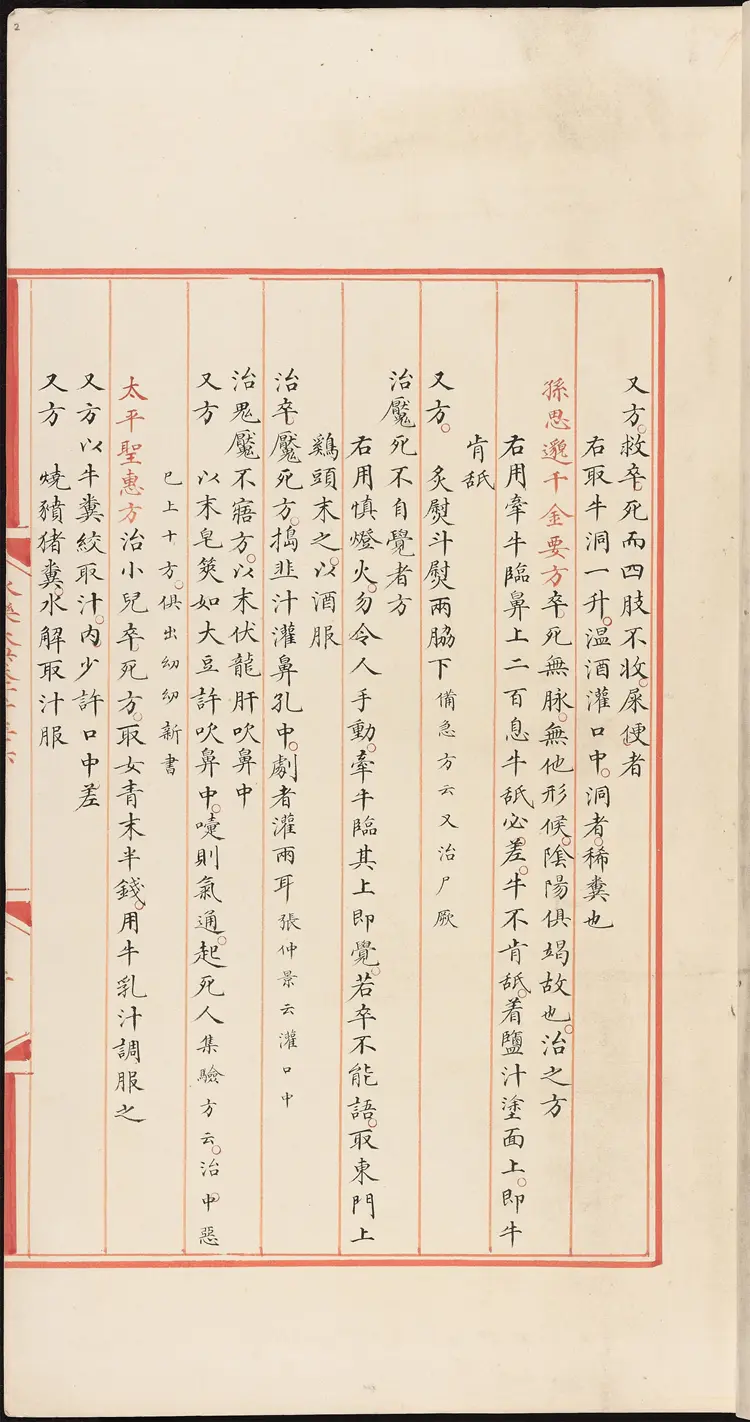 又方。救卒死而四肢不收。屎便者
右取牛洞一升。温酒灌口中。洞者。稀糞也
孫思邈千金要方卒死無脉。無他形候。陰陽俱竭故也。治之方
右用牽牛臨鼻上二百息牛舐必差。牛不肯舐。着鹽汁塗面上。即牛
肯舐
又方。炙熨斗熨兩脇下備急方云又治尸厥
治魘死不自覺者方
右用慎燈火。勿令人手動。牽牛臨其上即覺。若卒不能語。取東門上
鷄頭末之。以酒服
治卒魘死方。搗韭汁灌鼻孔中。劇者灌兩耳張仲景云灌口中
治鬼魘不寤方。以末伏龍肝吹鼻中
又方 以末皂筴如大豆許吹鼻中。嚏則氣通。起死人集驗方云。治中惡
已上十方。俱出幼幼新書
太平聖惠方治小兒卒死方。取女青末半錢。用牛乳汁調服之
又方以牛糞絞取汁。内少許口中差
又方 燒豶猪糞。水解取汁服
2